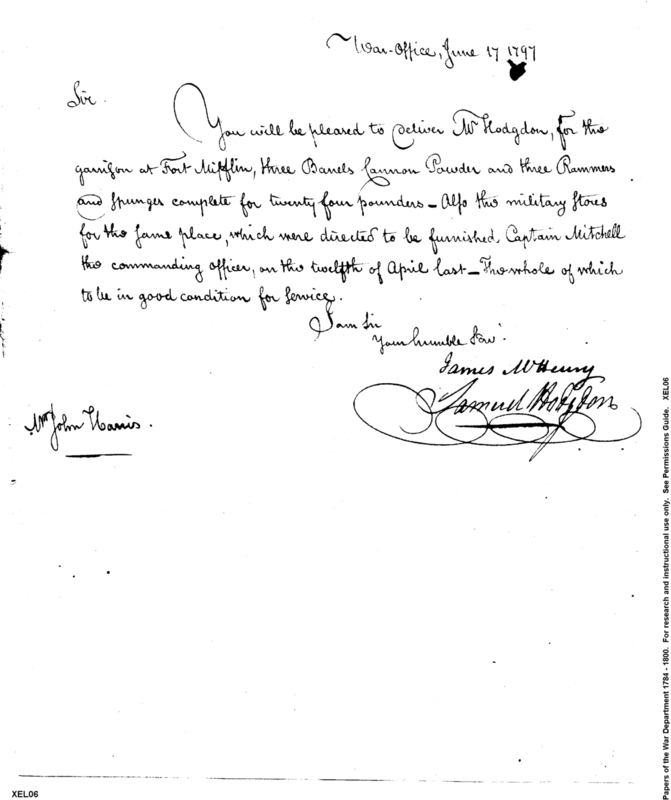 War-Office, June 17 1797
Sir.
You will be pleased to deliver Mr Hodgdon, for the
garrison at Fort Mifflin, three Barrels Cannon Powder and three Rammers
and Spunges complete for twenty four pounders - Also the military Stores
for the same place, which were directed to be furnished, Captain Mitchell
the commanding officer, on the twelfth of April last - The whole of which
to be in good condition for Service.
I am Sir
Your humble Serv.
James McHenry
Samuel Hodgdon
Mr John Harris.
XEL06
Papers of the War Department 1784 - 1800. For research and instructional use only. See Permissions Guide. XEL06